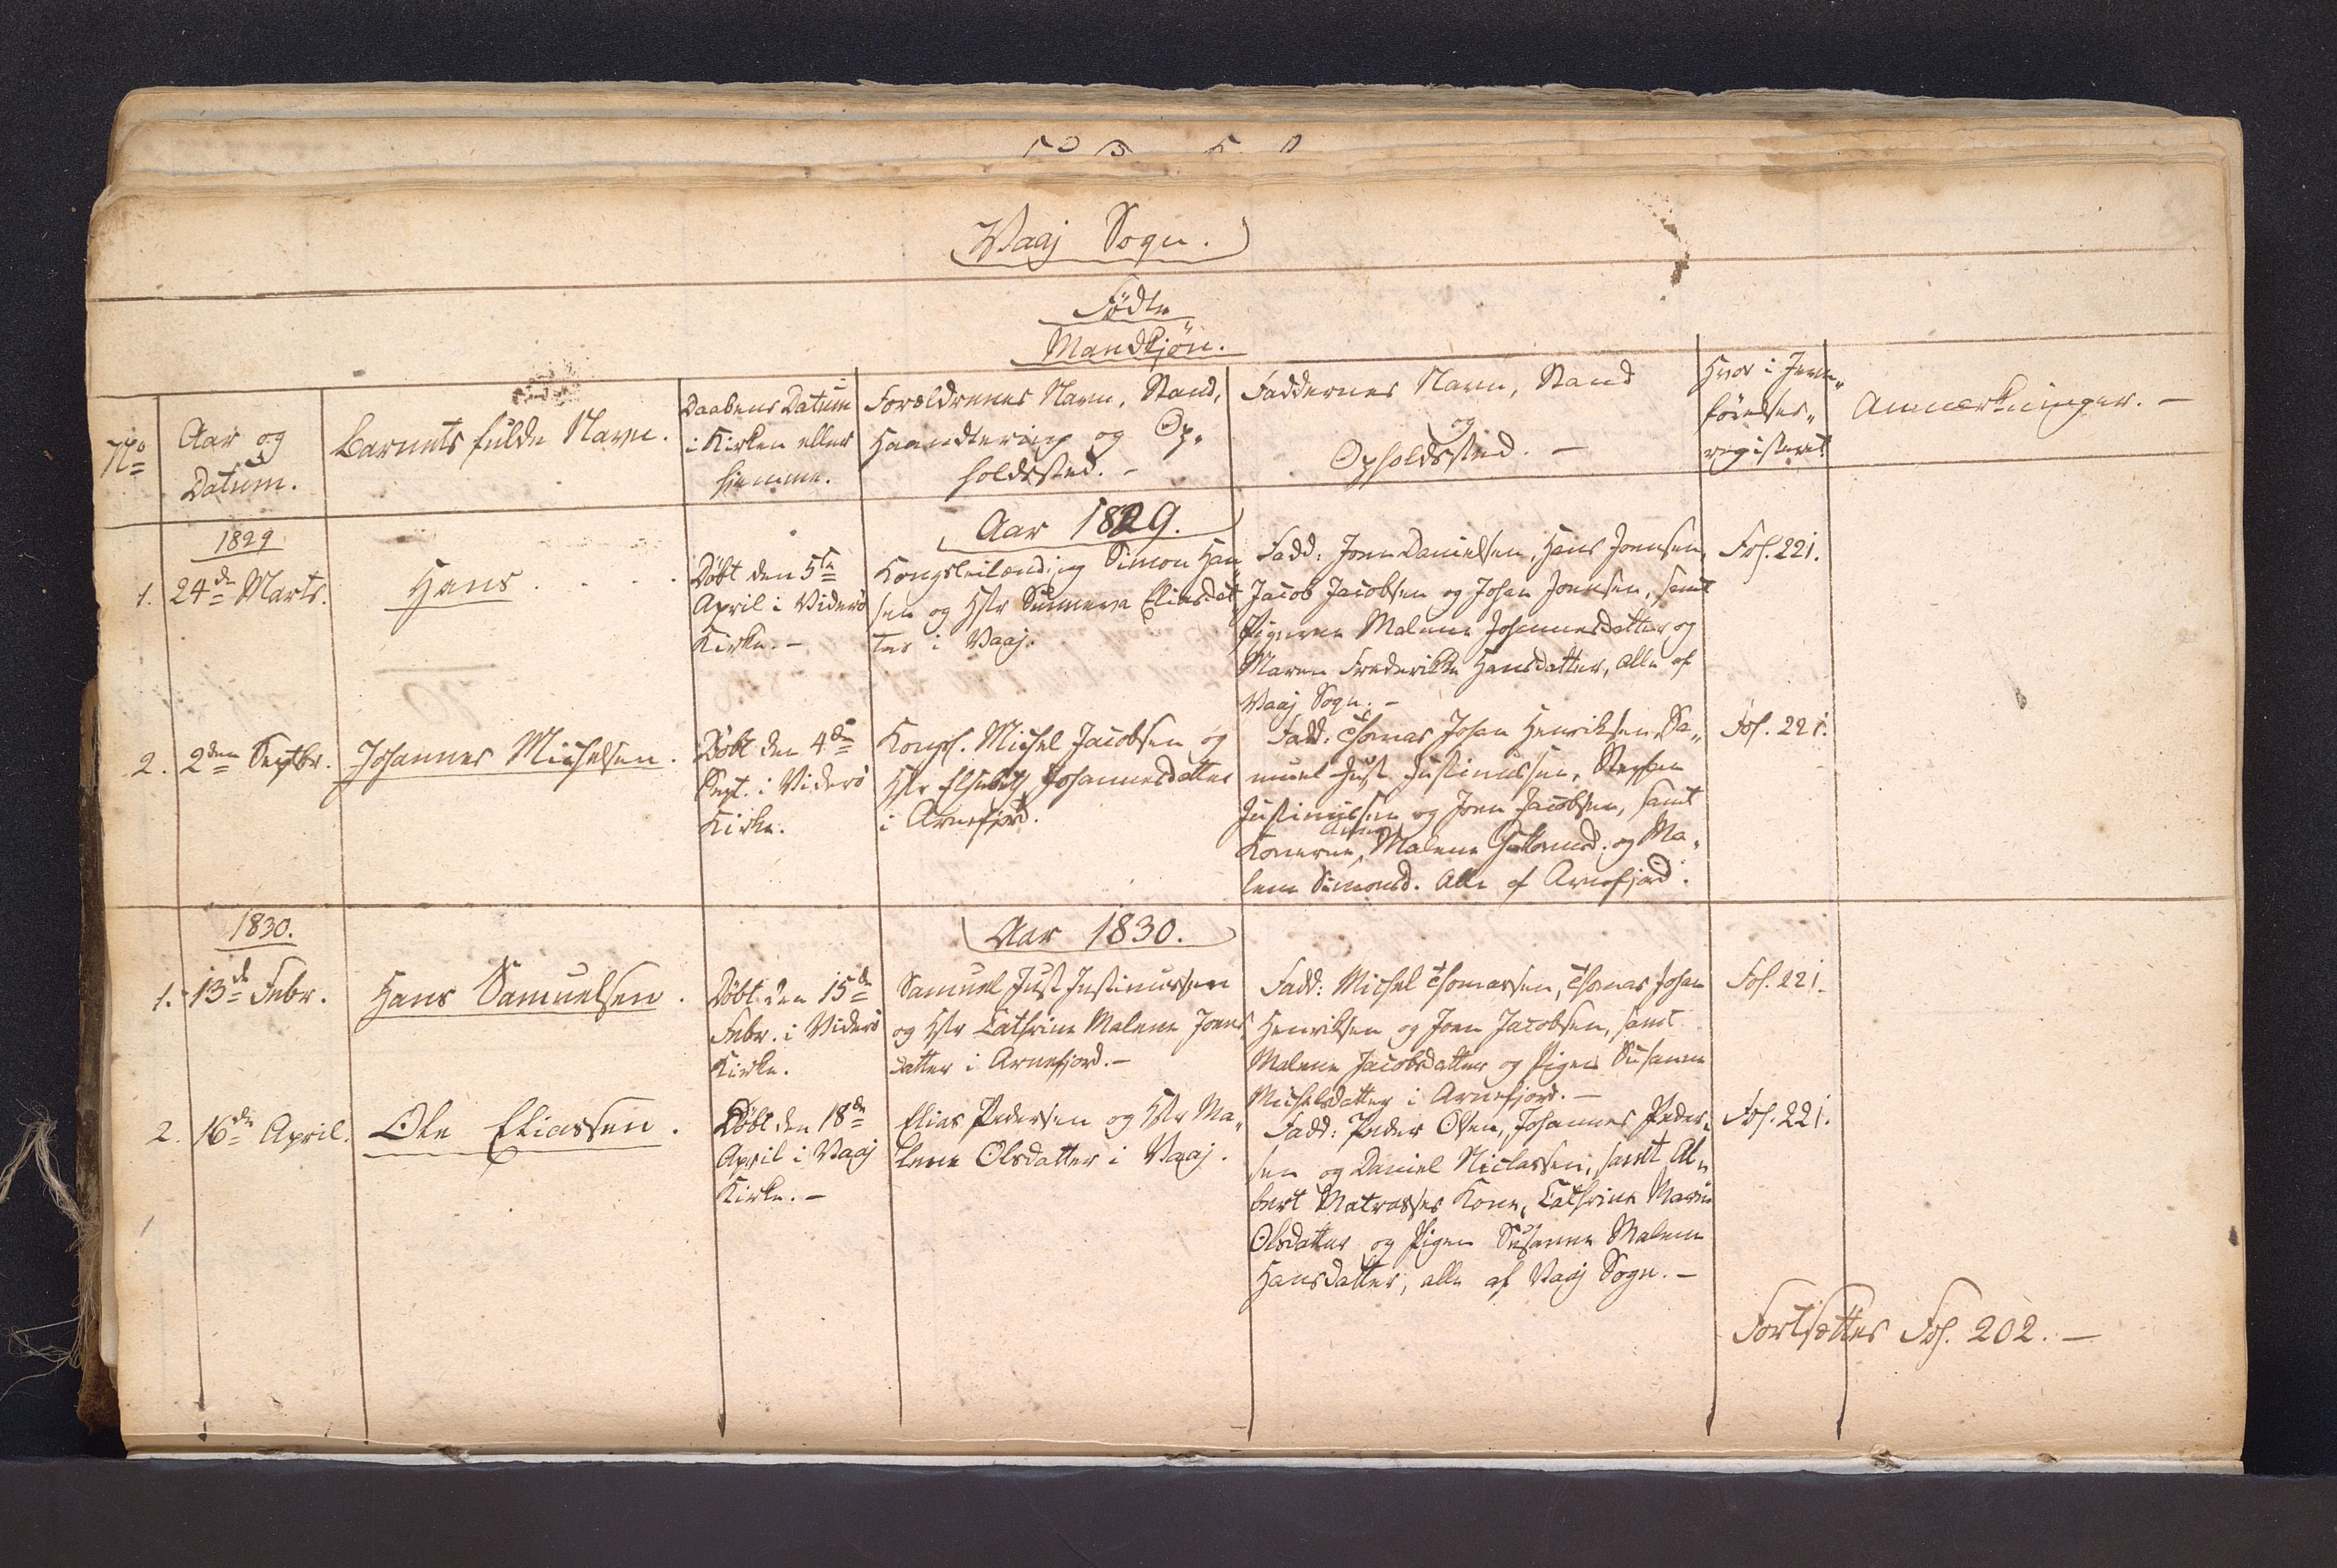 Vaaj Sogn.
Fødte
Mandkjön.
No
Aar og
Datum.
Barnets fulde Navn.
Daabens Datum
i Kirken eller
hjemme.
Forældrenes Navn, Stand,
Haandtering og Op-
holdssted. -
Faddernes Navn, Stand
og
Opholdssted. -
Hvor i Jevn-
førelses-
registeret
Anmærkninger. -
Aar 1829.
1829
1.
24de Marts.
Hans . . . .
Døbt den 5te
April i Viderø
Kirke. -
Kongsleilænding Simon Han-
sen og Hstr Sunneva Eliasdat-
ter i Vaaj.
Fadd: Joen Danielsen, Hans Joensen,
Jacob Jacobsen og Johan Joensen, samt
Pigerne Malene Johannesdatter og
Maren Frederikke Hansdatter, alle af
Vaaj Sogn. -
Fol. 221.
2.
2den Septbr.
Johannes Michelsen.
Døbt den 4de
Sept. i Viderø
Kirke.
Kongsl. Michel Jacobsen og
Hstr Elsebeth Johannesdatter
i Arnefjord.
Fadd: Thomas Johan Henriksen, Sa-
muel Just Justinussen, Steffen
Justinussen og Joen Jacobsen, samt
Konerne, Malene og Ma-
lene Simonsd. alle af Arnefjord.
Fol. 221.
Aar 1830.
1830.
1.
13de Febr.
Hans Samuelsen.
Døbt den 15de
Febr. i Viderø
Kirke.
Samuel Just Justinussen
og Hstr Cathrine Malene Joens-
datter i Arnefjord. -
Fadd: Michel Thomassen, Thomas Johan
Henriksen og Joen Jacobsen, samt
Malene Jacobsdatter og Pigen Susanne
Michelsdatter i Arnefjord. -
Fol. 221.
2.
16de April.
Ole Eliassen.
Døbt den 18de
April i Vaaj
Kirke. -
Elias Pedersen og Hstr Ma-
lene Olsdatter i Vaaj.
Fadd: Peder Olsen, Johannes Peder-
sen og Daniel Niclassen, samt Al-
bert Matrasses Kone, Cathrine Marie
Olsdatter og Pigen Susanne Malene
Hansdatter, alle af Vaaj Sogn. -
Fol. 221.
Fortsættes Fol. 202. -